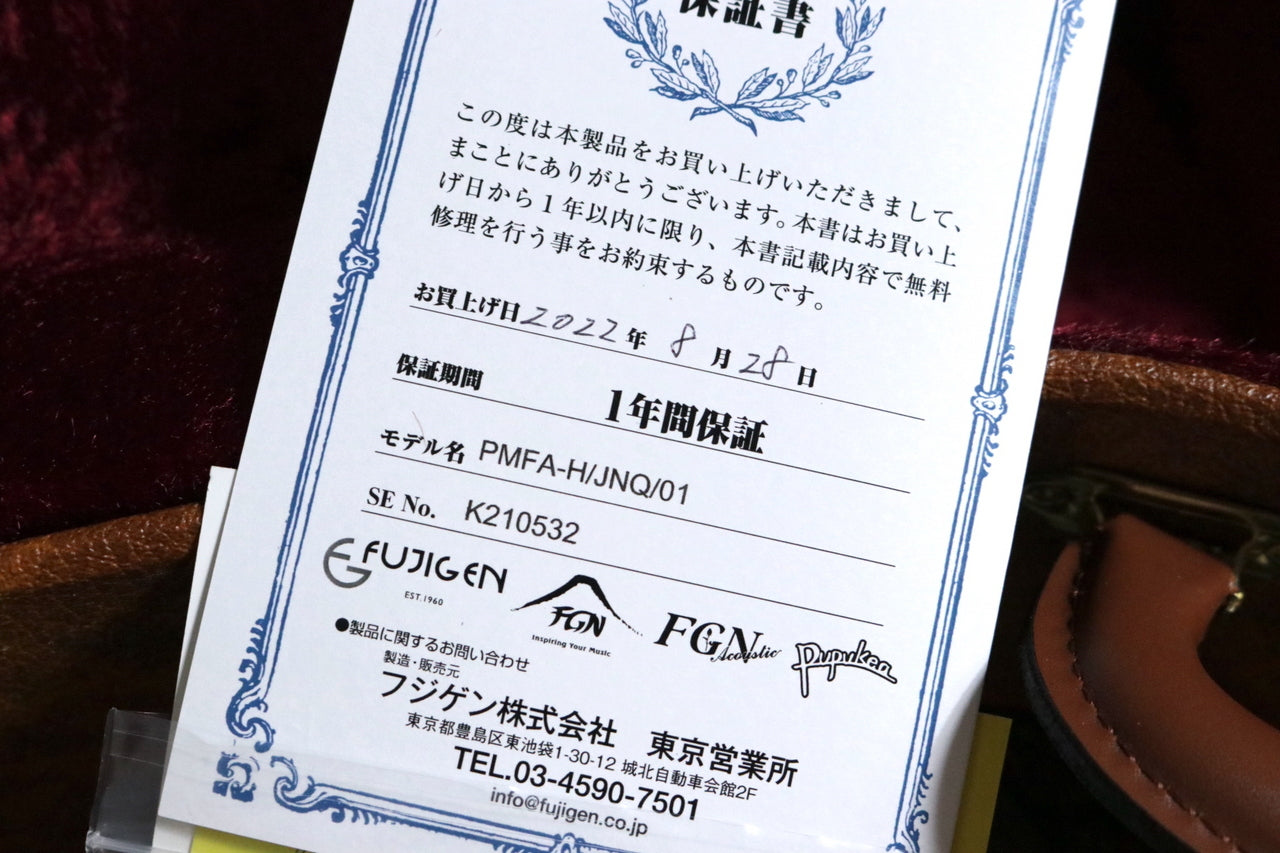 保証書
この度は本製品をお買い上げいただきまして、
まことにありがとうございます。本書はお買い上
げ日から1年以内に限り、本書記載内容で無料
修理を行う事をお約束するものです。
お買上げ日2022年 8月28日
保証期間 1年間保証
モデル名 PMFA-H/JNQ/01
SE No. K210532
FUJIGEN
EST.1960
FGN
Inspiring Your Music
FGN Acoustic
Pupukea
●製品に関するお問い合わせ
製造・販売元
フジゲン株式会社 東京営業所
東京都豊島区東池袋1-30-12 城北自動車会館2F
TEL.03-4590-7501
info@fujigen.co.jp